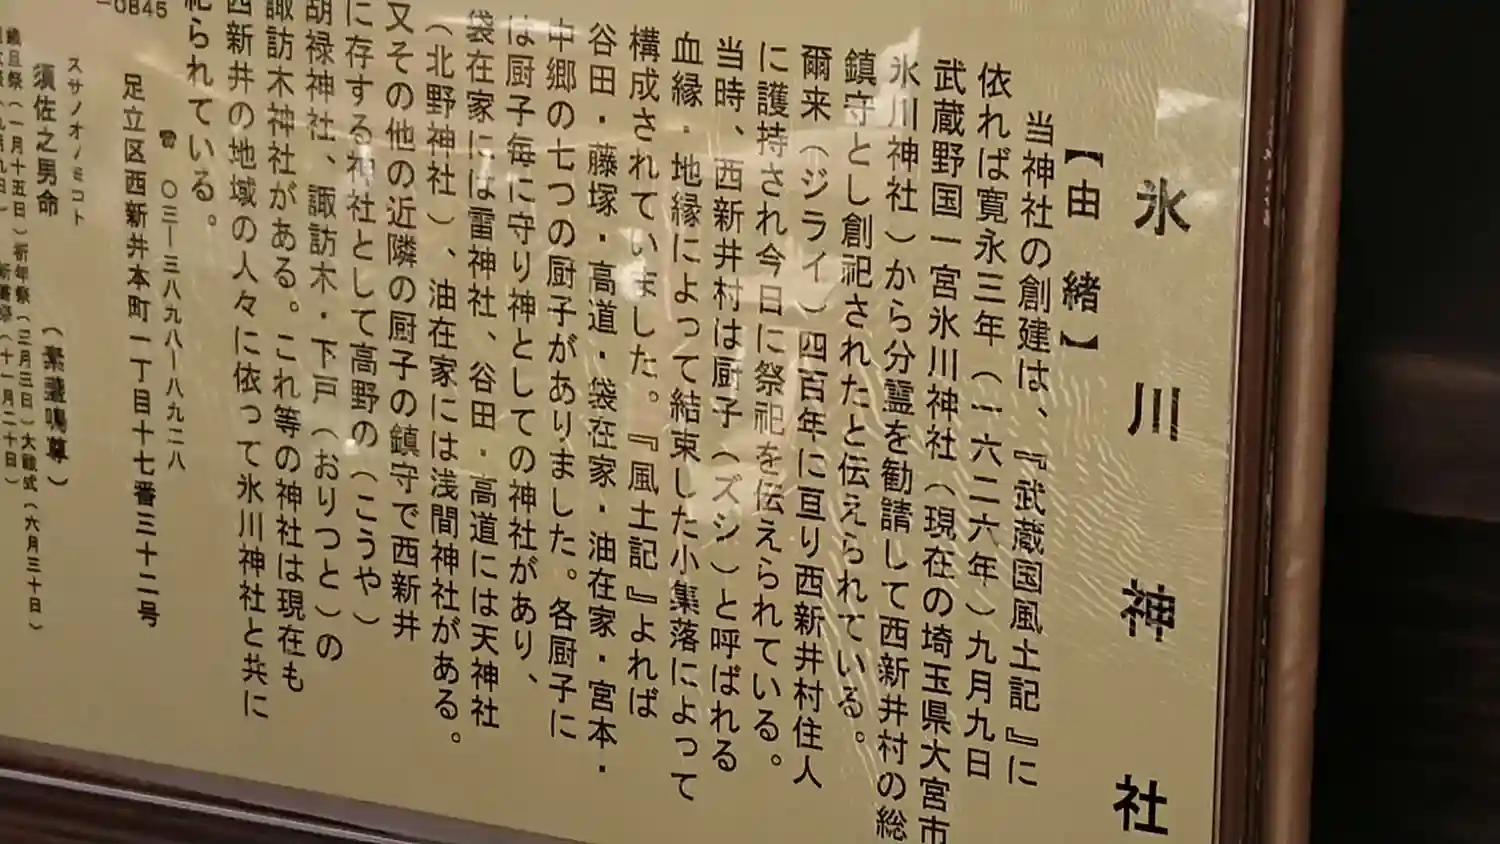 氷川神社
【由緒】
当神社の創建は、『武蔵国風土記』に
依れば寛永三年（一六二六年）九月九日
武蔵野国一宮氷川神社（現在の埼玉県大宮市
氷川神社）から分霊を勧請して西新井村の総
鎮守とし創祀されたと伝えられている。
爾来（ジライ）四百年に亘り西新井村住人
に護持され今日に祭祀を伝えられている。
当時、西新井村は厨子（ズシ）と呼ばれる
血縁・地縁によって結束した小集落によって
構成されていました。『風土記』よれば
谷田・藤塚・高道・袋在家・油在家・宮本・
中郷の七つの厨子がありました。各厨子に
は厨子毎に守り神としての神社があり、
袋在家には雷神社、谷田・高道には天神社
（北野神社）、油在家には浅間神社がある。
又その他の近隣の厨子の鎮守で西新井
に存する神社として高野の（こうや）
胡禄神社、諏訪木・下戸（おりつと）の
諏訪木神社がある。これ等の神社は現在も
西新井の地域の人々に依って氷川神社と共に
祀られている。
足立区西新井本町一丁目十七番三十二号
☎ 〇三ー三八九八ー八九二八
－0845
スサノオノミコト
須佐之男命
（素盞鳴尊）
歳旦祭（一月十五日）祈年祭（三月三日）大祓式（六月三十日）